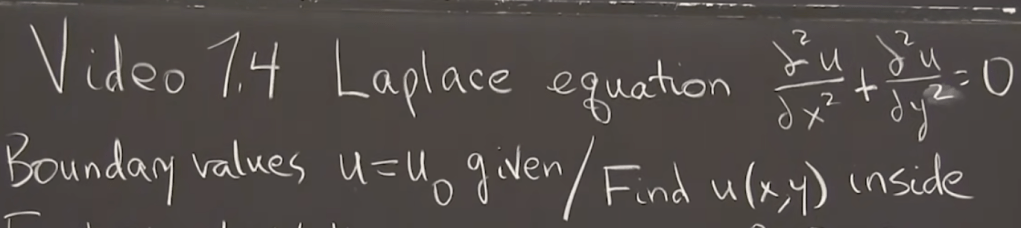 Video 7.4 Laplace equation ∂²u/∂x² + ∂²u/∂y² = 0
Boundary values u=u₀ given / Find u(x,y) inside